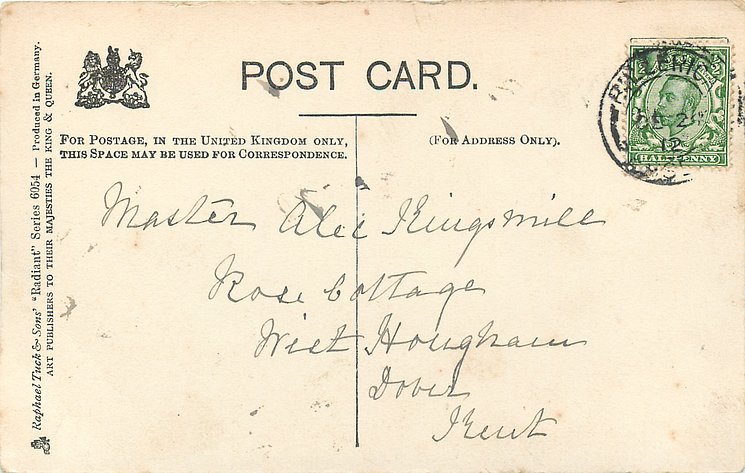 POST CARD.
FOR POSTAGE, IN THE UNITED KINGDOM ONLY,
THIS SPACE MAY BE USED FOR CORRESPONDENCE.
(FOR ADDRESS ONLY).
Master Alec Kingsmill
Rose Cottage
West Hougham
Dover
Kent
Raphael Tuck & Sons' "Radiant" Series 6054 — Produced in Germany.
ART PUBLISHERS TO THEIR MAJESTIES THE KING & QUEEN.
HALFPENNY
12